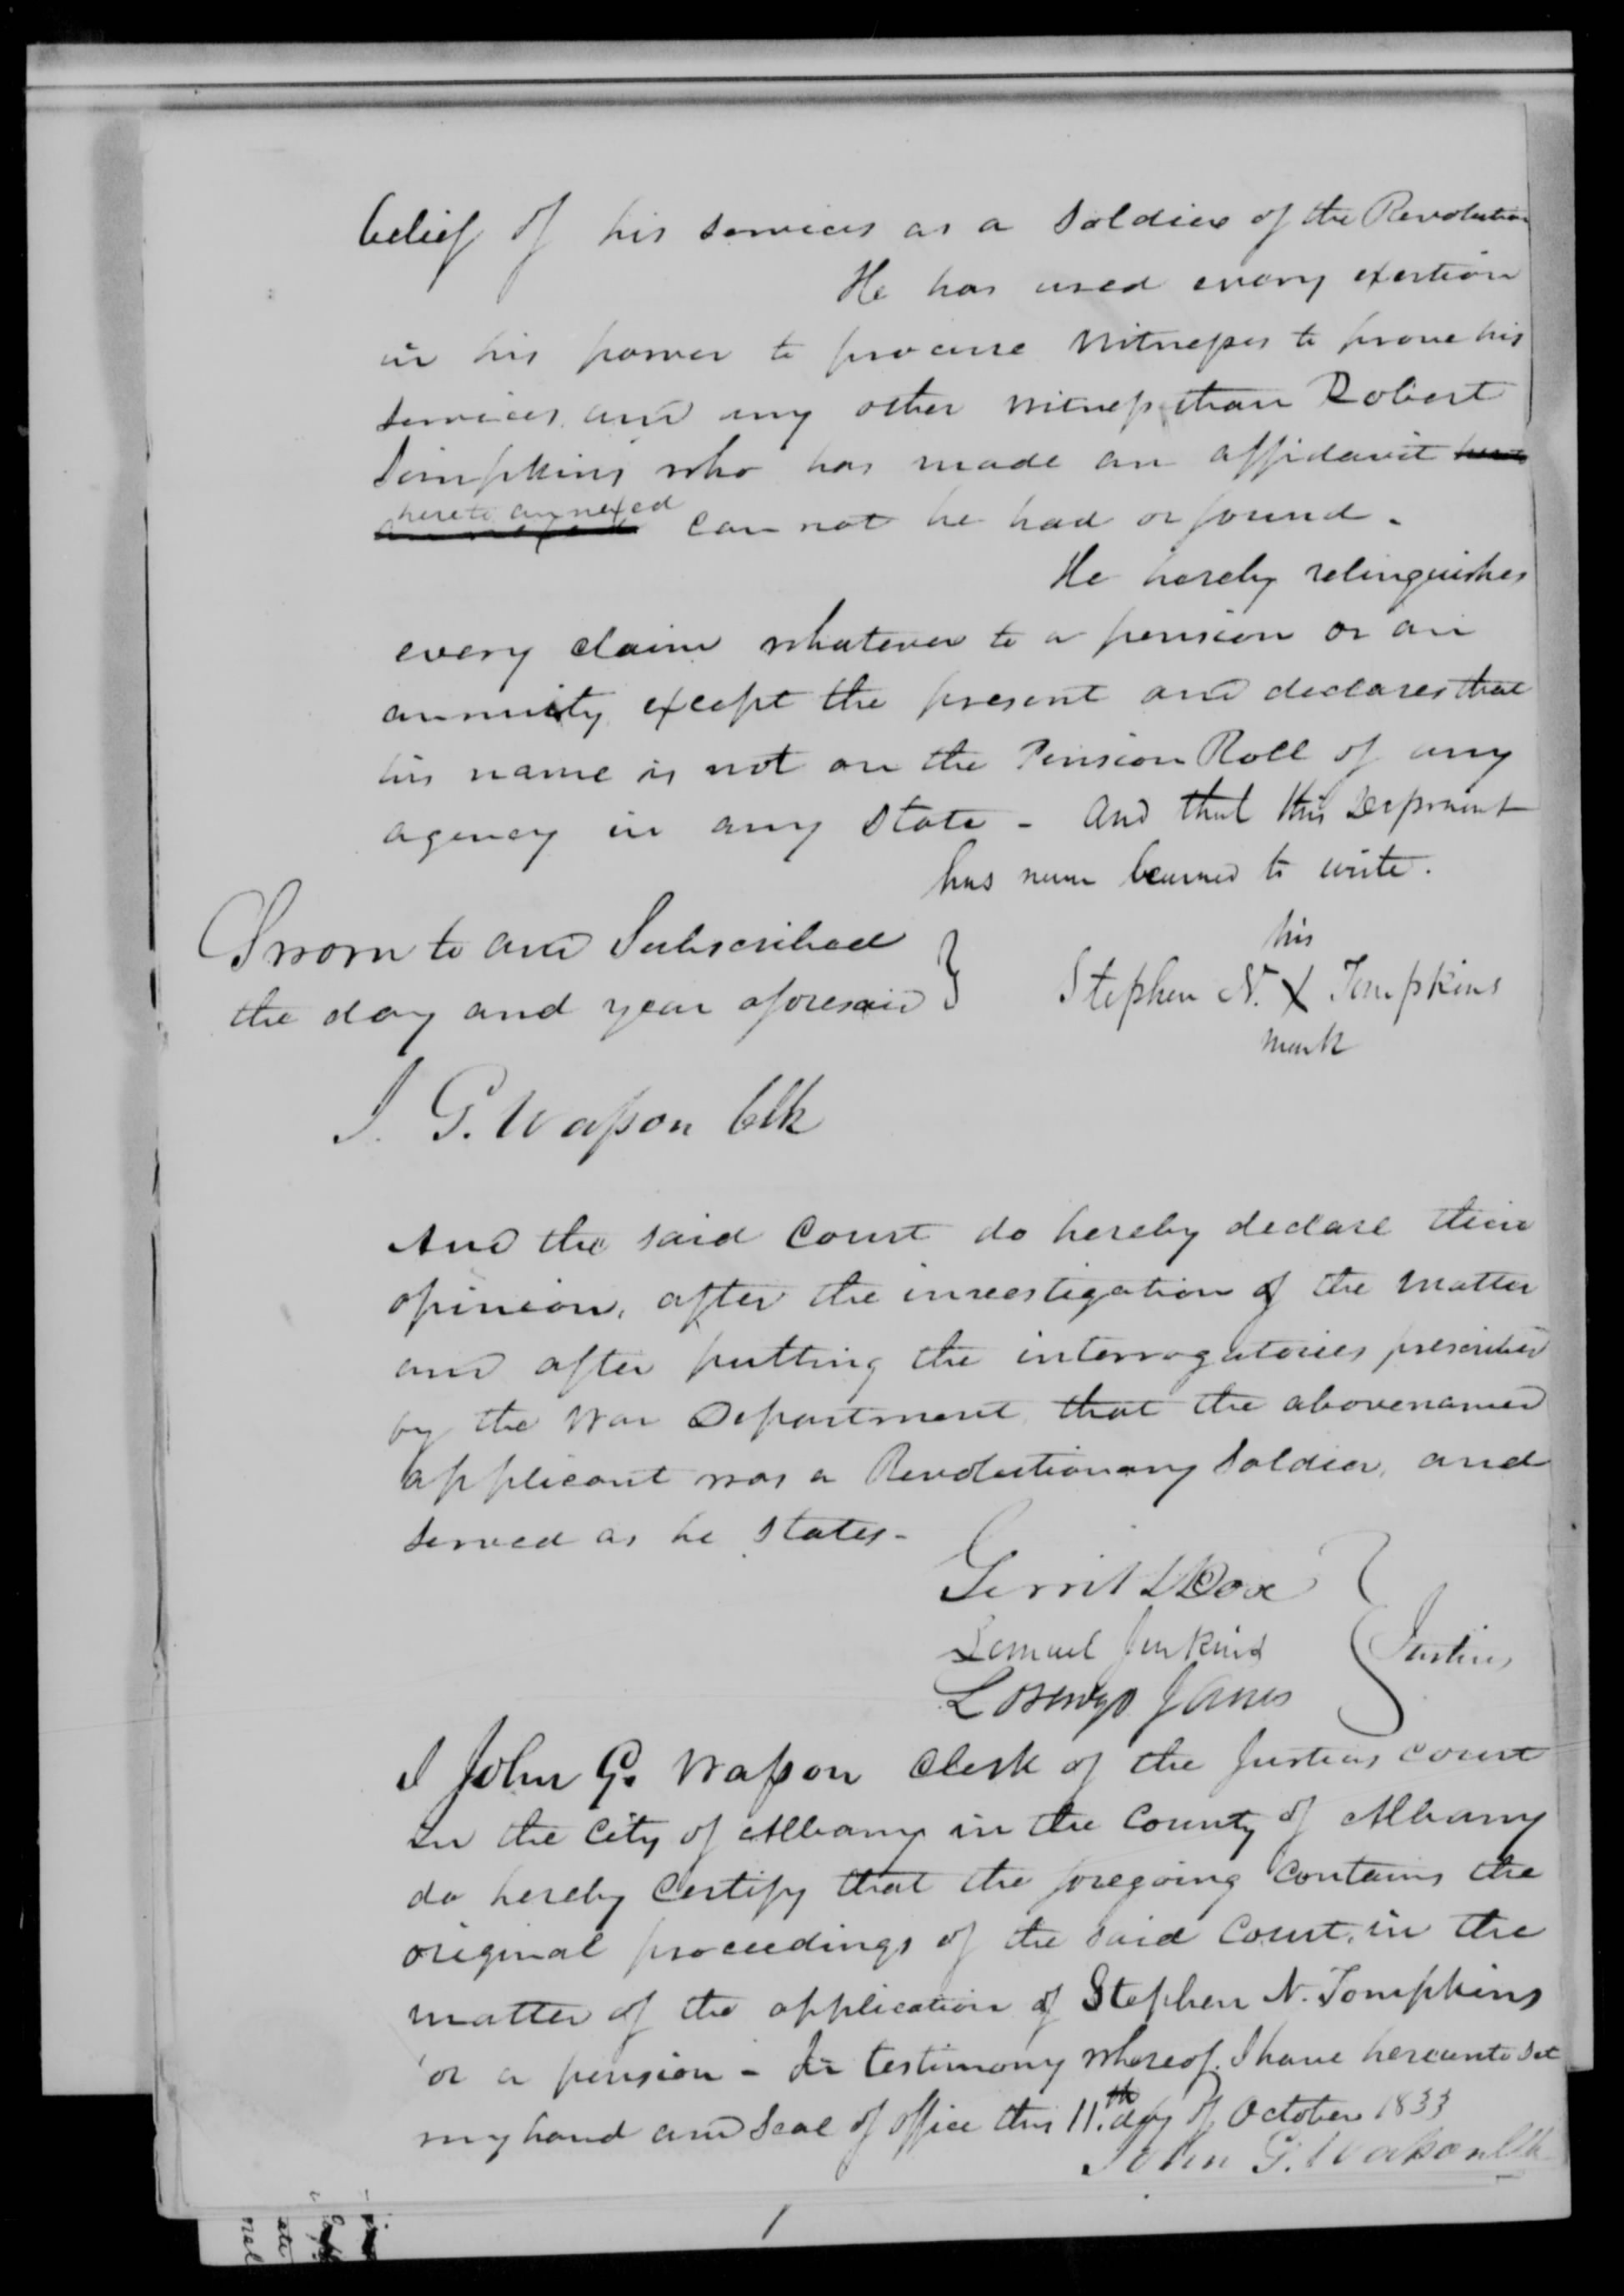 belief of his services as a Soldier of the Revolution
He has used every exertion
in his power to procure Witnesses to prove his
services, and any other Witness than Robert
Tompkins who has made an affidavit
hereto annexed
annexed can not be had or found.
He hereby relinquishes
every claim whatever to a pension or an
annuity except the present and declares that
his name is not on the Pension Roll of any
agency in any State - And that this Deponent
has never learned to write.
Sworn to and Subscribed
the day and year aforesaid
his
Stephen N. X Tompkins
mark
J. G. Wasson Clk
And the said Court do hereby declare their
opinion, after the investigation of the matter
and after putting the interrogatories prescribed
by the War Department, that the abovenamed
applicant was a Revolutionary Soldier, and
served as he states-
Gerrit L Dox
Lemuel Jenkins
Justices
Lorenzo Janes
I John G. Wasson Clerk of the Justices court
in the City of Albany in the County of Albany
do hereby Certify that the foregoing Contains the
original proceedings of the said Court, in the
matter of the application of Stephen N. Tompkins
or a pension - In testimony whereof I have hereunto set
my hand and Seal of office this 11.th day of October 1833
John G. Wasson Clk